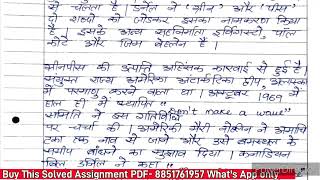 से चलता है। डर्नेल ने 'ग्रीन' और 'पीस'
दो शब्दों को जोड़कर इसका नामकरण किया
है। इसके अन्य सहनिर्माता इर्विंगस्टो, पॉल
कोटे और जिम बोहलेन हैं।
ग्रीनपीस की उत्पत्ति अहिंसक कारवाई से हुई है।
संयुक्त राज्य अमेरिका अंटार्कटिका द्वीप, अलास्का
में परमाणु करने वाला था। अक्टूबर 1969 में
हाल ही में स्थापित "Don't make a wave"
समिति ने इस गतिविधि
पर चर्चा की। अमेरिकी मैरी बोहेलन ने
तक नाव से जाने और उसे
समीप बांधने का सुझाव दिया। कनाडियन
बिल डर्नेल ने कहा
Buy This Solved Assignment PDF- 8851761957 What's App only